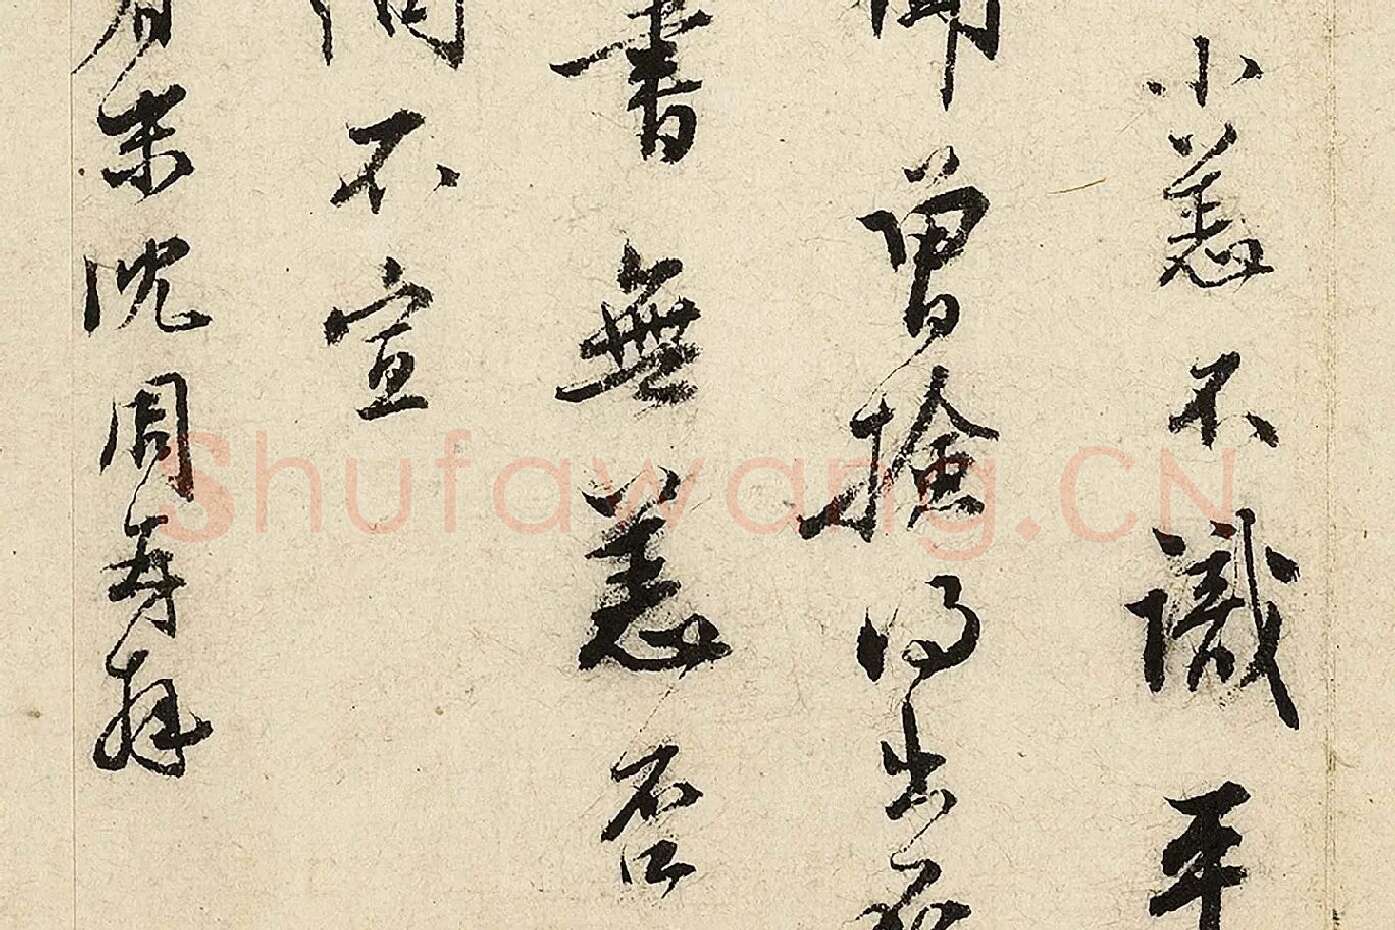 小恙不識平
聞曾撿得出
書無恙否
間不宣
眷末沈周再拜
Shufawang.CN